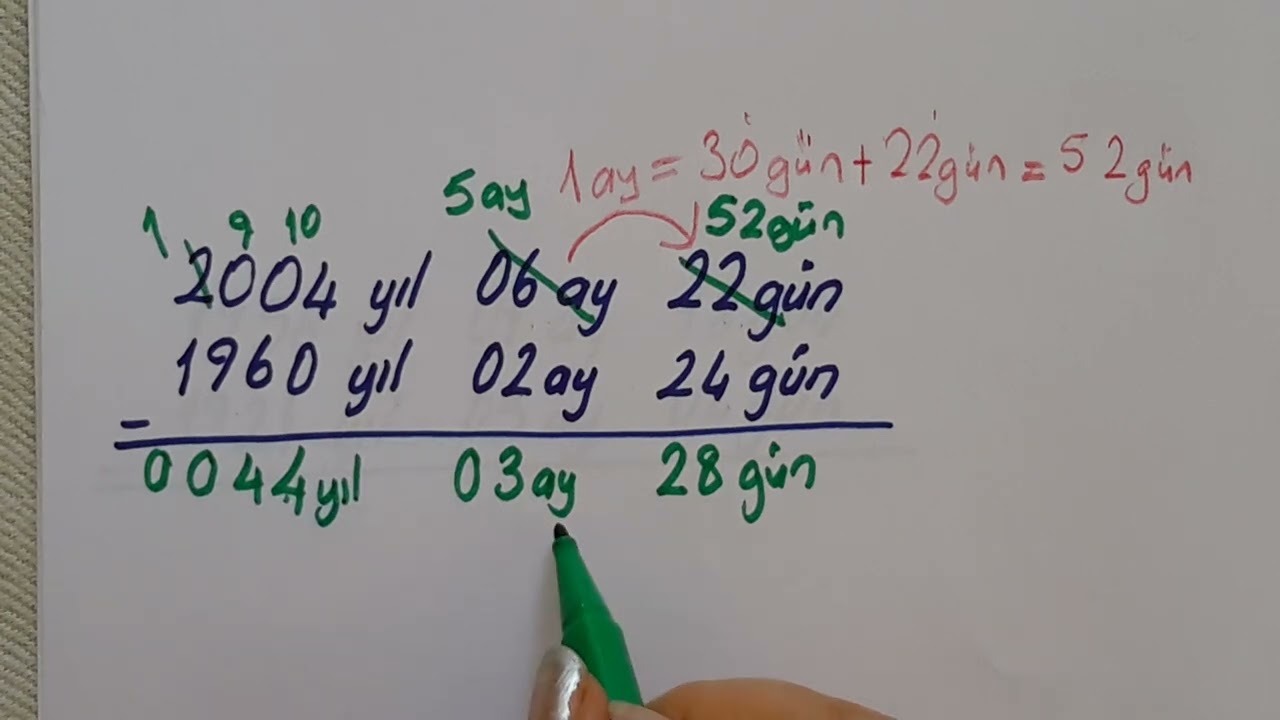 1 ay = 30 gün + 22 gün = 52 gün
1 9 10 5 ay 52 gün
2004 yıl 06 ay 22 gün
1960 yıl 02 ay 24 gün
-
0044 yıl 03 ay 28 gün